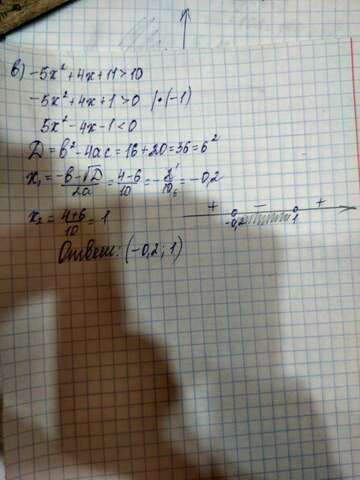 в) -5x² + 4x + 11 > 10
-5x² + 4x + 1 > 0 | • (-1)
5x² - 4x - 1 < 0
D = b² - 4ac = 16 + 20 = 36 = 6²
x₁ = (-b - √D)/2a = (4 - 6)/10 = -2/10 = -0,2
x₂ = (4 + 6)/10 = 1
+ - +
-0,2 1
Ответ: (-0,2; 1)